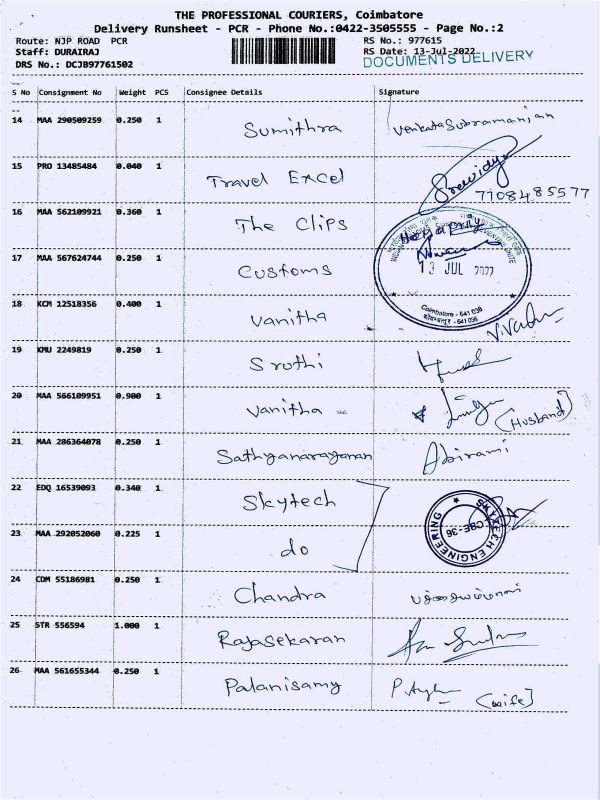 THE PROFESSIONAL COURIERS, Coimbatore
Delivery Runsheet - PCR - Phone No.:0422-3505555 - Page No.:2
Route: NJP ROAD PCR RS No.: 977615
Staff: DURAIRAJ RS Date: 13-Jul-2022
DRS No.: DCJB97761502 DOCUMENTS DELIVERY
S No Consignment No Weight PCS Consignee Details Signature
14 MAA 290509259 0.250 1 Sumithra Venkata Subramanian
15 PRO 13485484 0.040 1 Travel Excel Srividya
7708485577
16 MAA 562109921 0.360 1 The Clips
17 MAA 567624744 0.250 1 Customs
13 JUL 2022
Coimbatore - 641 036
18 KCM 12518356 0.400 1 Vanitha
19 KMU 2249819 0.250 1 Sruthi
20 MAA 566109951 0.900 1 Vanitha (Husband)
21 MAA 286364078 0.250 1 Sathyanarayanan Abirami
22 EDQ 16539093 0.340 1 Skytech
SKYTECH ENGINEERING
CBE-36
23 MAA 292052060 0.225 1 do
24 COM 55186981 0.250 1 Chandra
25 STR 556594 1.000 1 Rajasekaran
26 MAA 561655344 0.250 1 Palanisamy (wife)